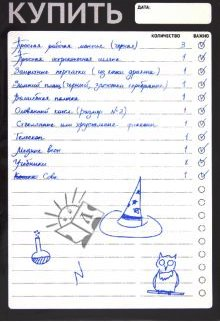 КУПИТЬ
ДАТА:
КОЛИЧЕСТВО ВАЖНО
Простая рабочая мантия (чёрная) 3
Простая остроконечная шляпа 1
Защитные перчатки (из кожи дракона) 1
Зимний плащ (чёрный, застёжки серебряные) 1
Волшебная палочка 1
Оловянный котёл (размер №2) 1
Стеклянные или хрустальные флаконы 1
Телескоп 1
Медные весы 1
Учебники 8
Сова 1
N